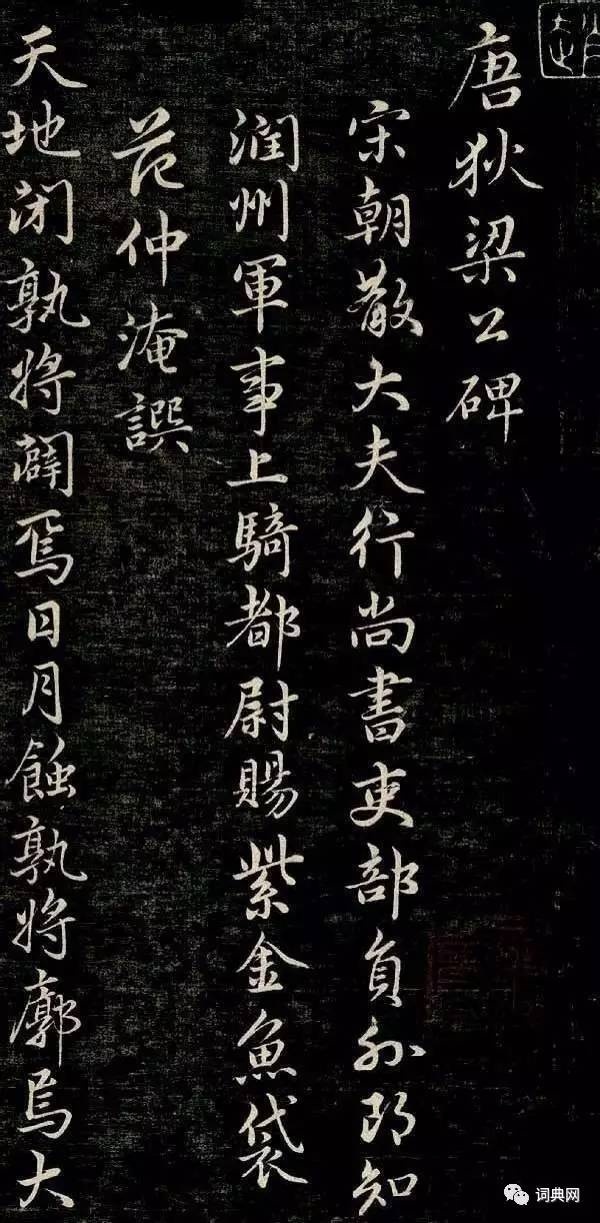 唐狄梁公碑
宋朝散大夫行尚書吏部員外郎知
潤州軍事上騎都尉賜紫金魚袋
范仲淹譔
天地閉孰將闢焉日月蝕孰將廓焉大
词典网